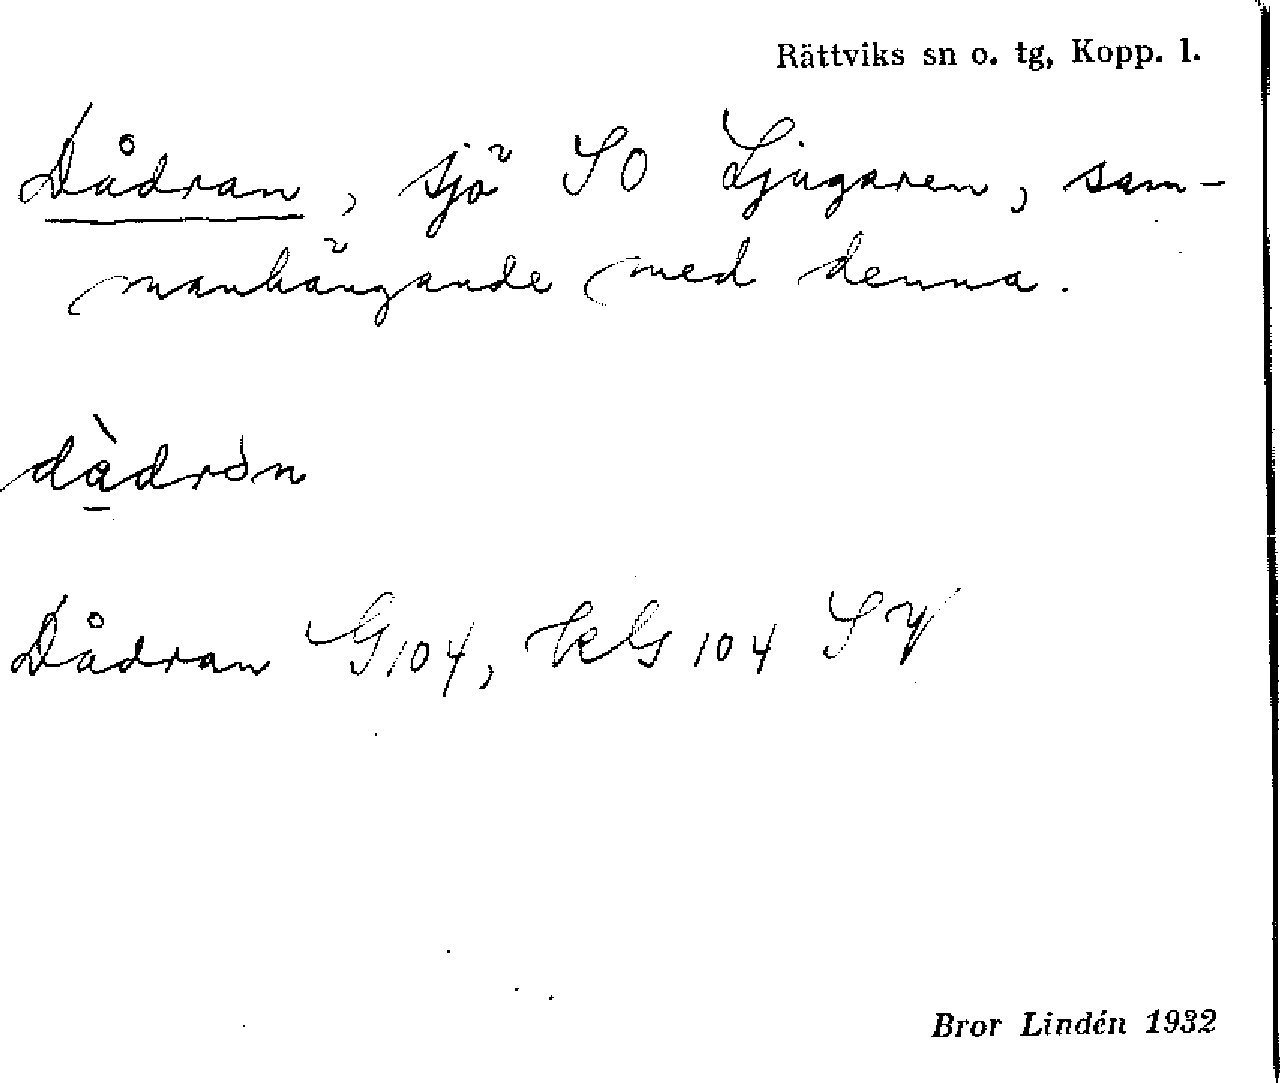 Rättviks sn o. tg, Kopp. l.
Dådran, sjö SO Ljugaren, sam-
manhängande med denna.
dà̱dròn
Dådran G104, kG 104 SV
Bror Lindén 1932